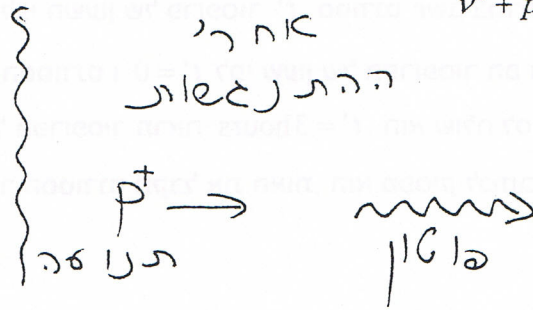 אחרי
ההתנגשות
p⁺
תנועה
פוטון